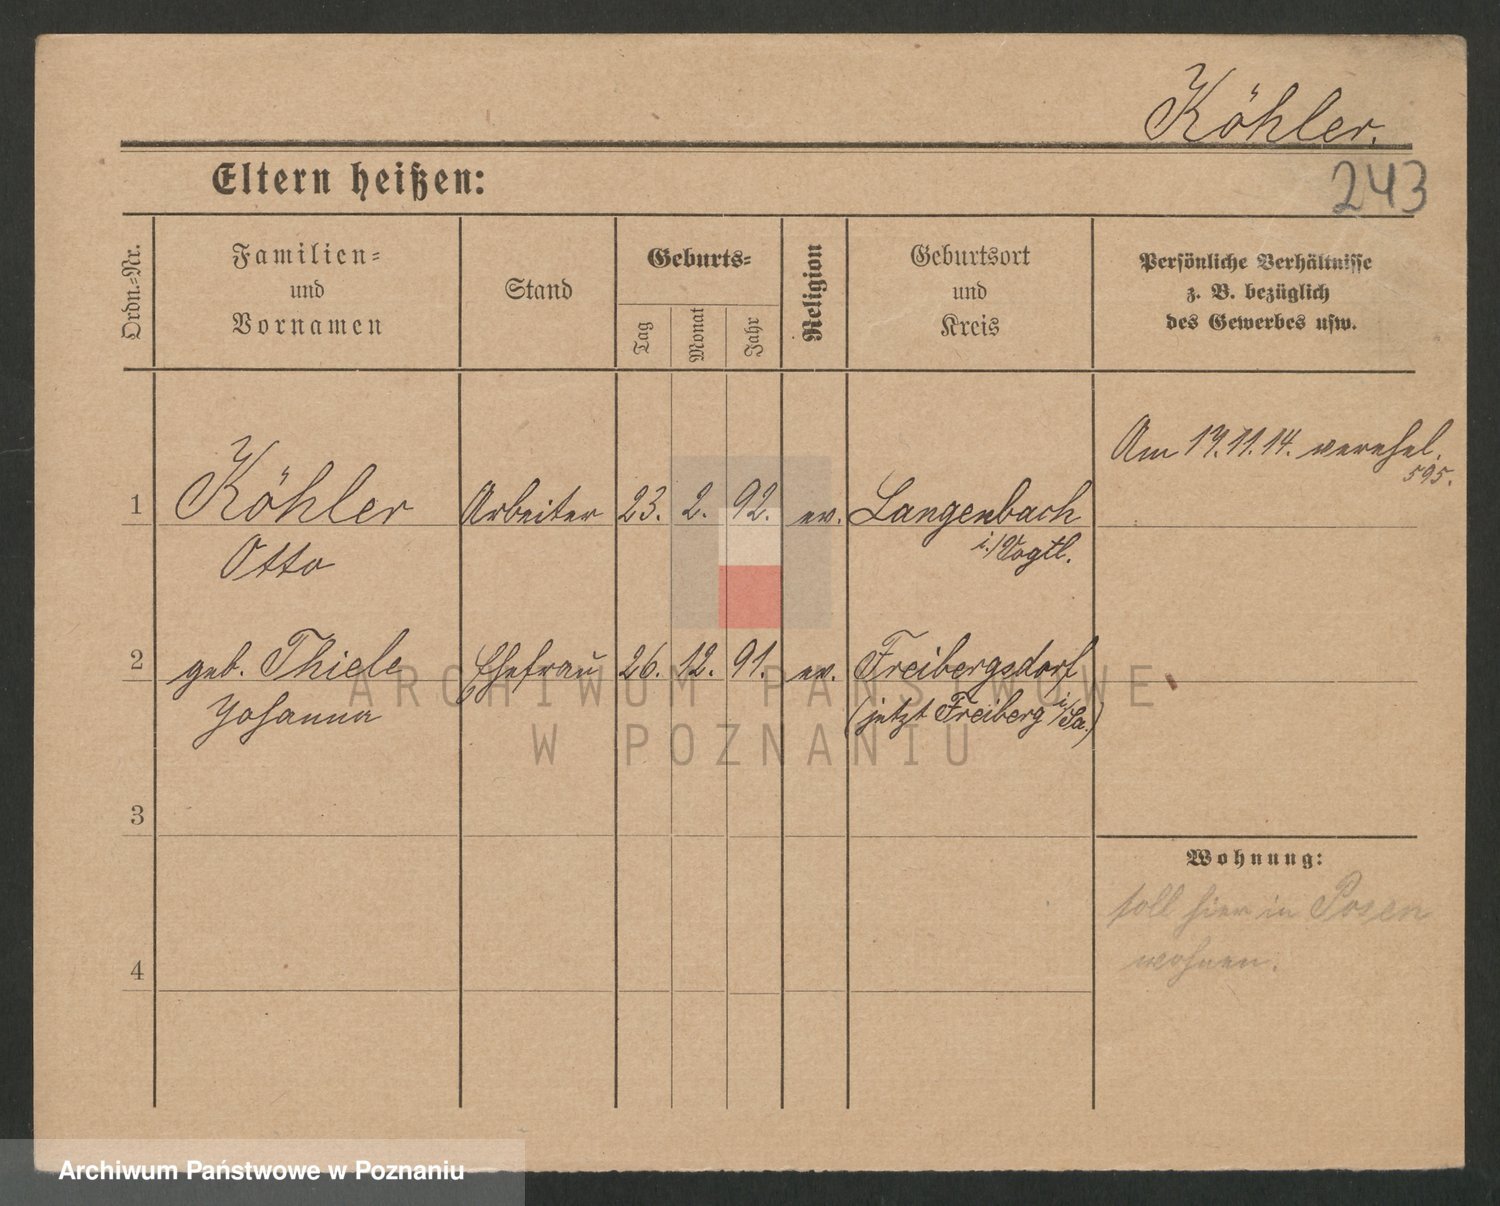 Köhler.
243
Eltern heißen:
Ordn.-Nr.
Familien-
und
Vornamen
Stand
Geburts-
Tag
Monat
Jahr
Religion
Geburtsort
und
Kreis
Persönliche Verhältnisse
z. B. bezüglich
des Gewerbes usw.
Am 17.11.14. verehel.
595.
1 Köhler Arbeiter 23. 2. 92. ev. Langenbach
Otto i./Vogtl.
2 geb. Thiele Ehefrau 26. 12. 91. ev. Freibergsdorf
Johanna (jetzt Freiberg i/Sa.)
3
Wohnung:
soll hier in Posen
wohnen.
4
ARCHIWUM PAŃSTWOWE
W POZNANIU
Archiwum Państwowe w Poznaniu